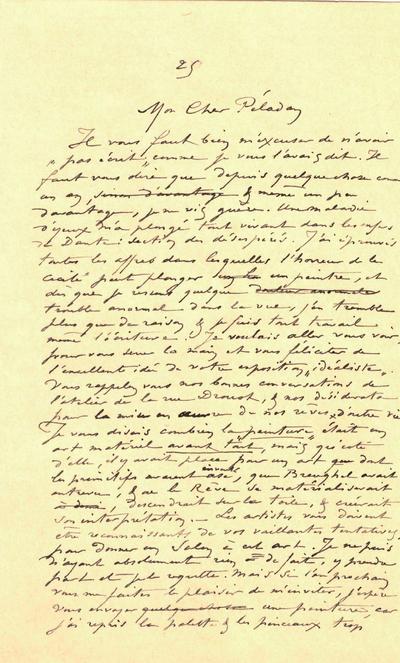 25
Mon Cher Péladan
Il vous faut bien m'excuser de n'avoir
"pas écrit," comme je vous l'avais dit. Il
faut vous dire que depuis quelque chose comme
un an, sinon davantage & même un peu
davantage, je ne vis guère. Une maladie
d'yeux m'a plongé tout vivant dans les enfers
de Dante: section des désespérés. J'ai éprouvé
toutes les affres dans lesquelles l'horreur de la
cécité peut plonger un peintre, et
dès que je ressens quelque
trouble anormal dans la vue, j'en tremble
plus que de raison, & je fuis tout travail
même l'écriture. Je voulais aller vous voir,
pour vous serrer la main et vous féliciter de
l'excellente idée de votre exposition "idéaliste".
Vous rappelez vous nos bonnes conversations de
l'atelier de la rue Drouot, & nos désidérata
pour la mise en œuvre de nos rêves d'outre vie
Je vous disais combien la peinture était un
art matériel avant tout, mais qu'à côté
d'elle, il y avait place pour un art dont
les primitifs avaient usé, que Breughel avait
entrevu, & où le Rêve se matérialisant
descendrait sur la toile, & créerait
son interprétation. — Les artistes vous doivent
être reconnaissants de vos vaillantes tentatives,
pour donner un Salon à cet art. Je ne puis
n'ayant absolument rien de fait, y prendre
part et je le regrette. Mais si l'an prochain
vous me faites le plaisir de m'inviter, j'espère
vous envoyer quelque chose une peinture, car
j'ai repris la palette & les pinceaux trop